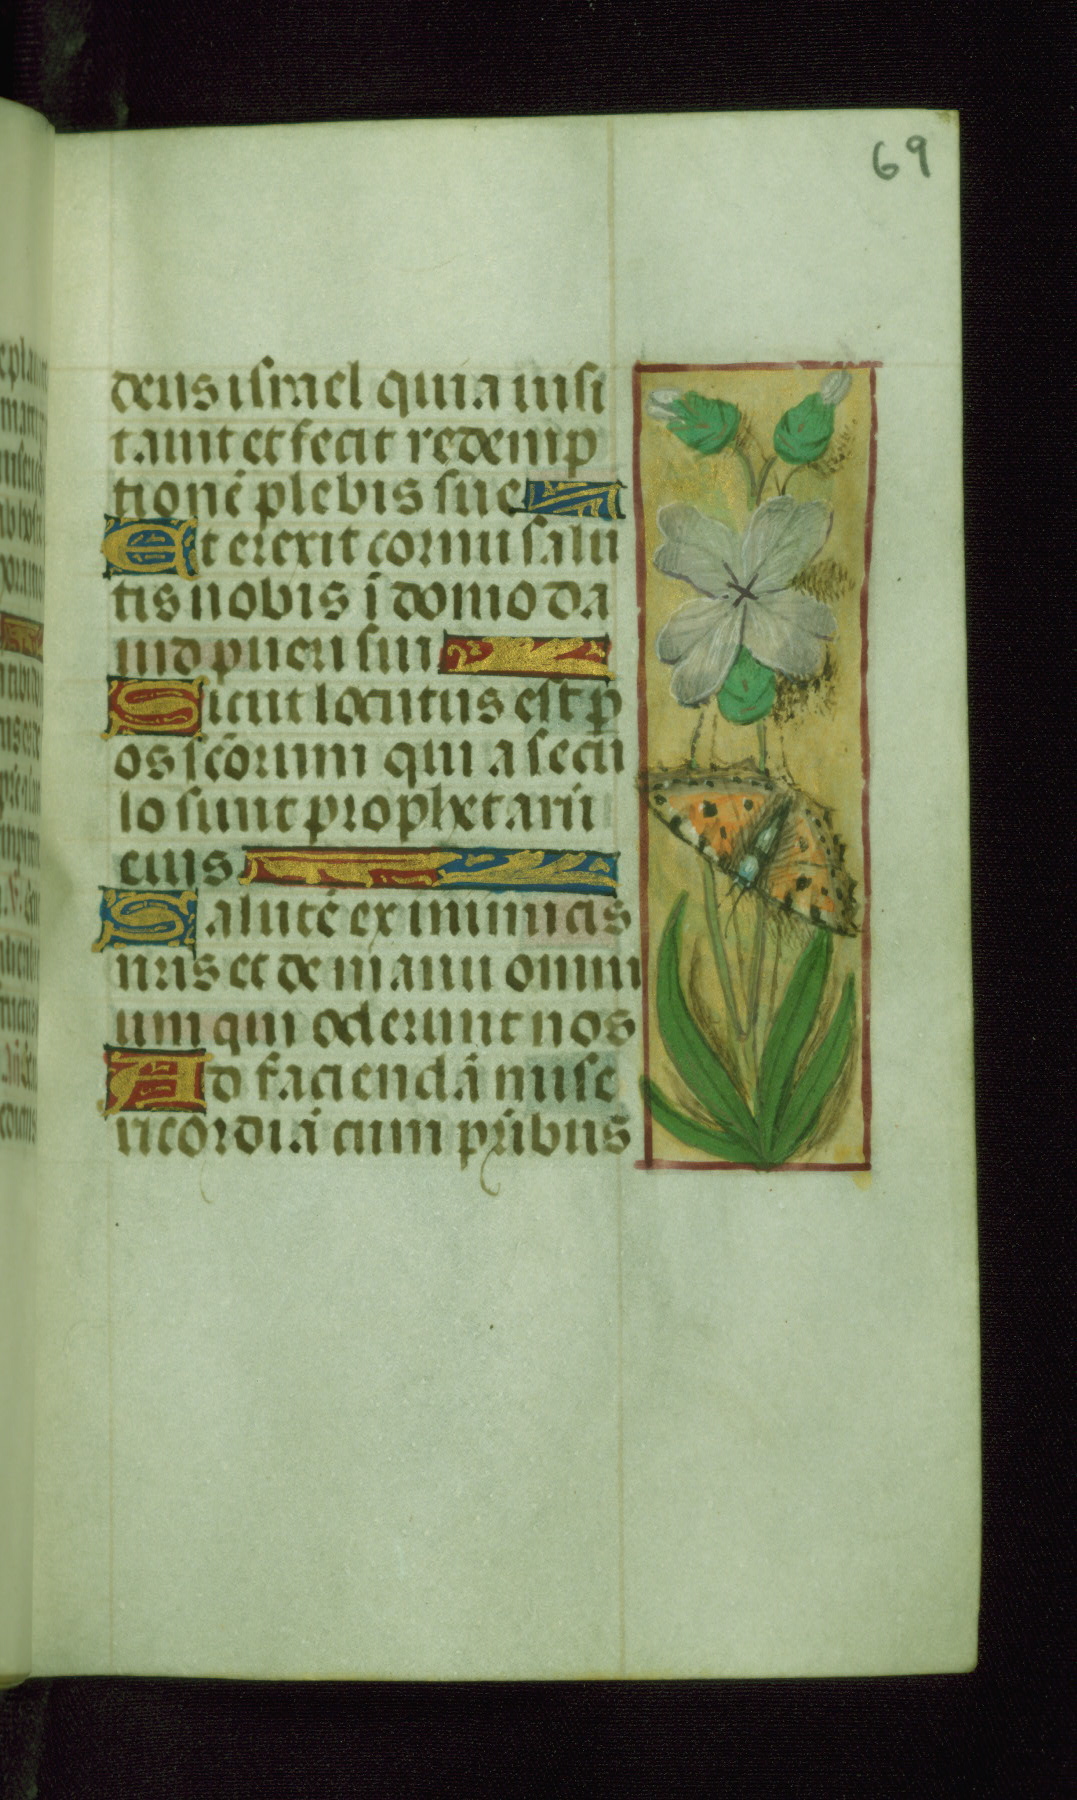 69
deus israel quia uisi
tauit et fecit redemp
tionē plebis sue
Et erexit cornu salu
tis nobis ī domo da
uid pueri sui
Sicut locutus est p̲
os scōrum qui a secu
lo sunt prophetarū
eius
Salutē ex inimicis
nr̄is et de manu omni
um qui oderunt nos
Ad faciendā mise
ricordiā cum pr̄ibus